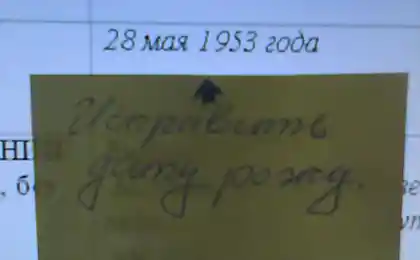 28 мая 1953 года
Исправить
дату рожд.
НИ
, бо